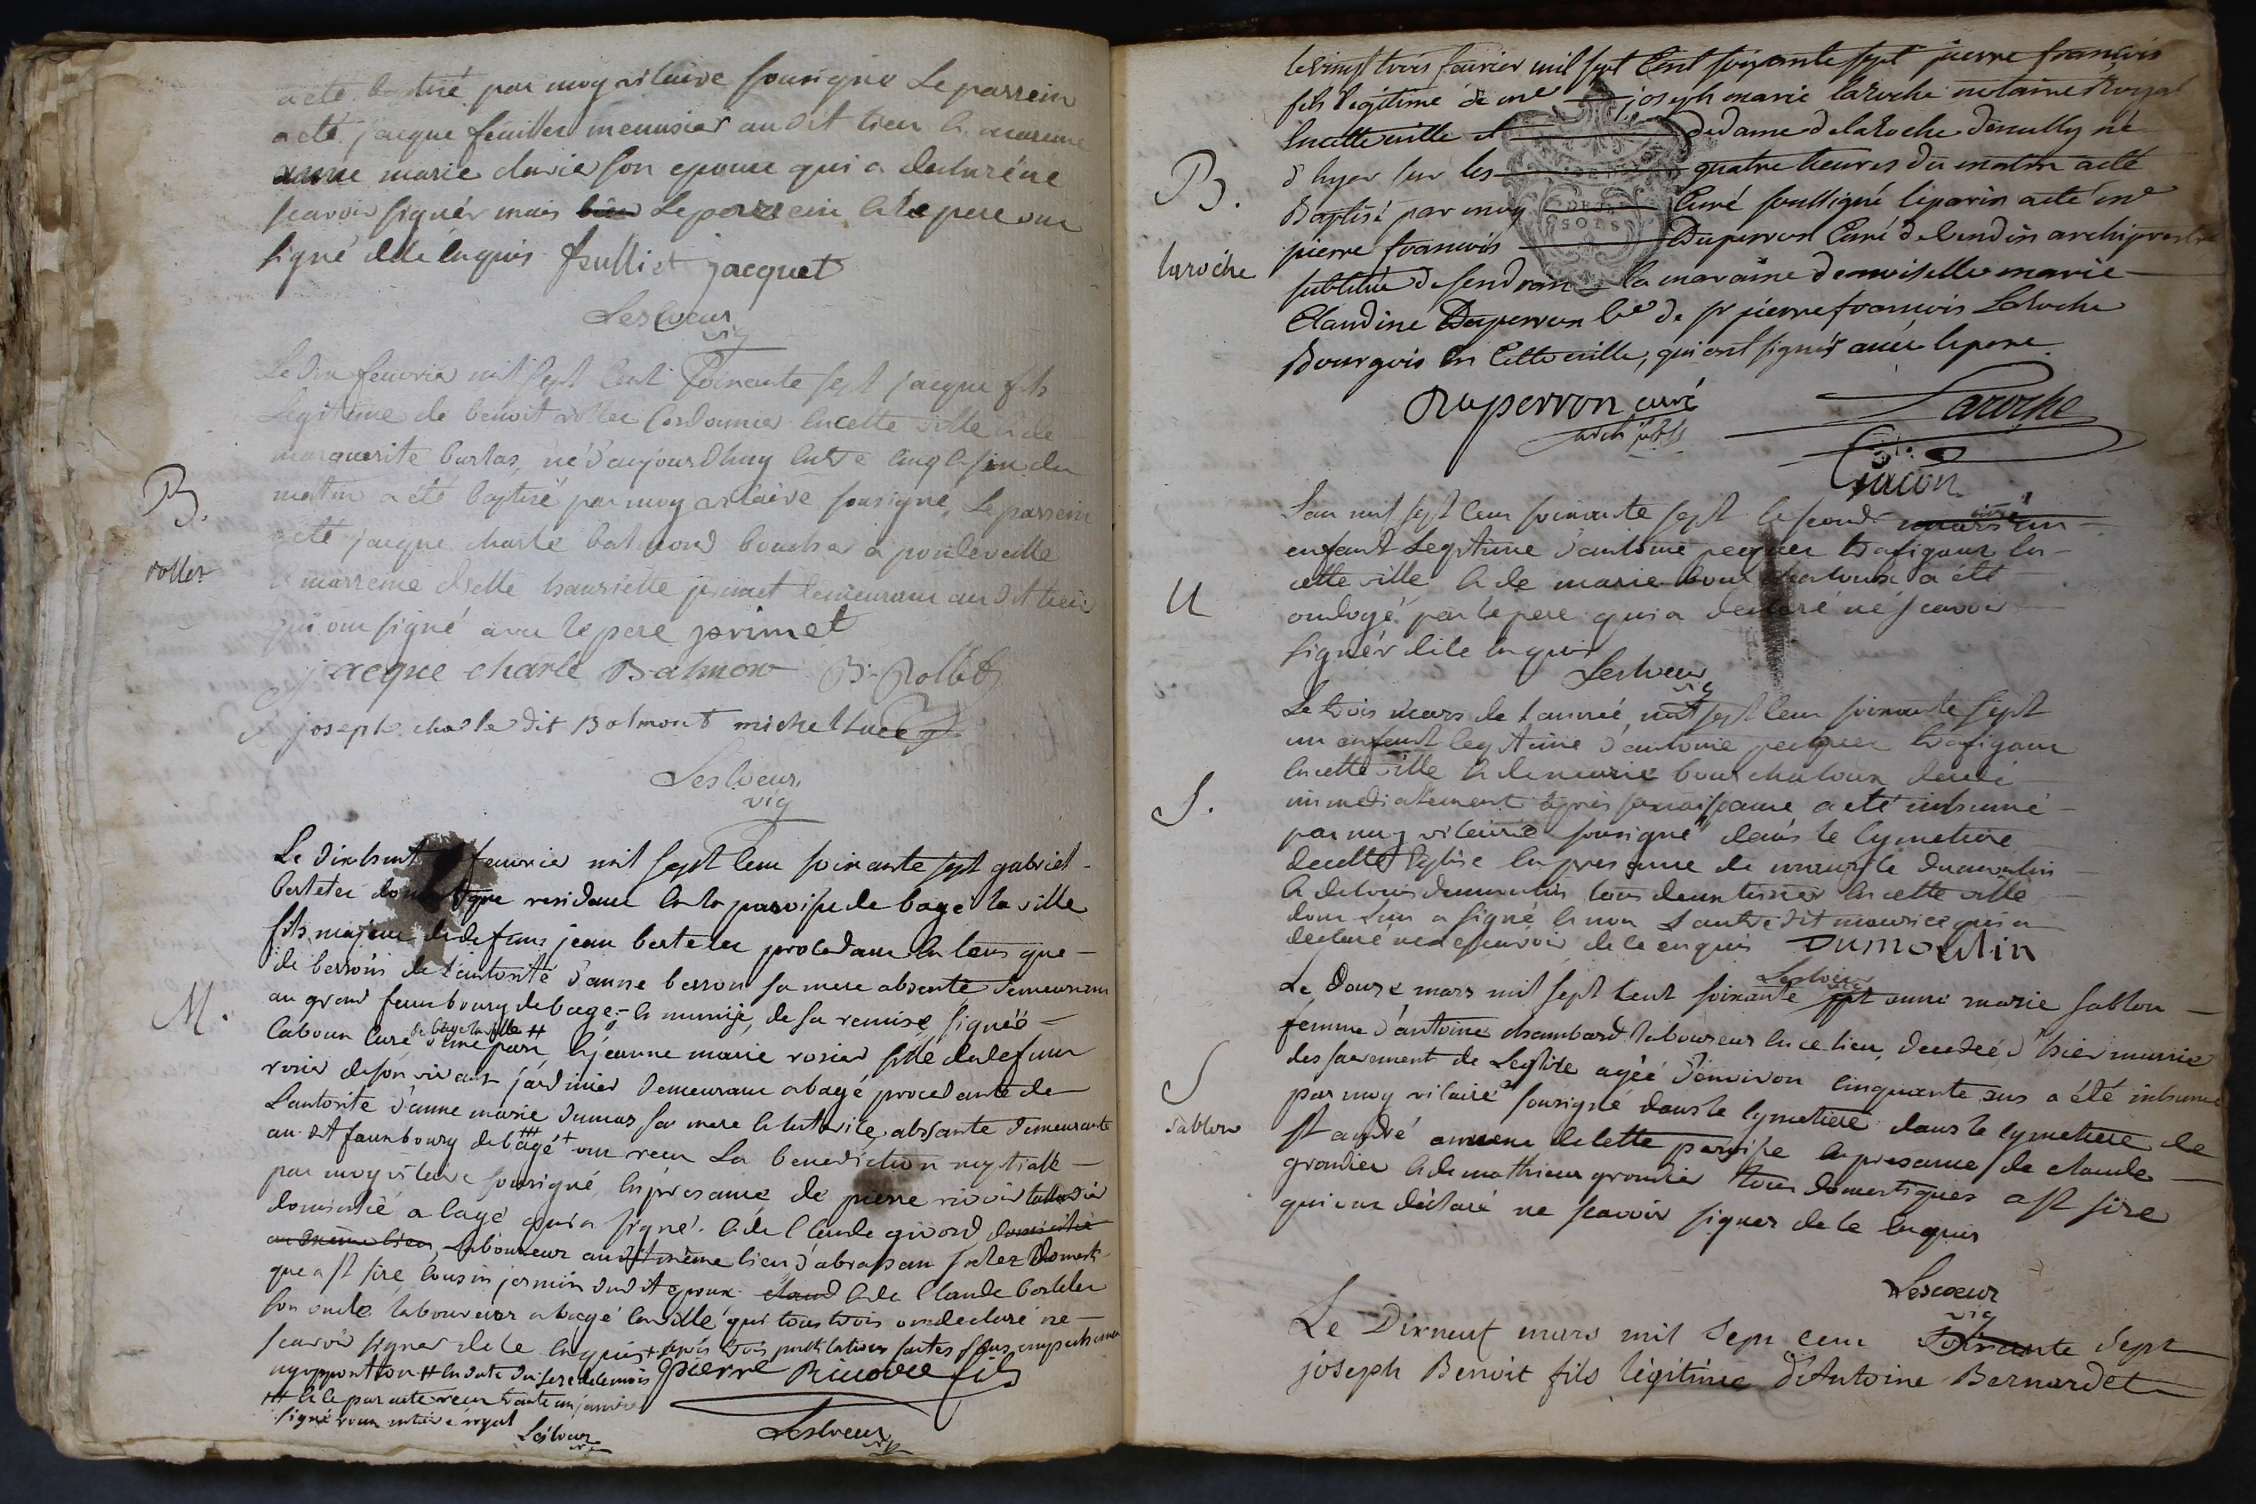 a ete baptisé par moy vicaire sousigne Le parrein
a eté jacque feuillet menusier audit lieu la mareine
marie clavier son epouse qui a declaré ne
scavoir signér mais Le parrein et le pere ont
signé de ce enquis feulliet jacquet
Lescoeur
vic
Le dix fevrier mil sept cent soixante sept jacque fils
Legitime de benoit rollet cordonnier en cette ville et de
marguerite burlas, né d'aujourdhuy entre cinq et six du
matin a été baptisé par moy vicaire sousigne, Le parrein
a été jacque charle balmond boucher a pondeveille
la marreine henriette primet demeurant au dit lieu
qui ont signé avec le pere primet
B.
rollet
jacque charle Balmon B. Rollet
joseph charle dit Balmont michel luce
Lescoeur
vic
Le dixhuit fevrier mil sept cent soixante sept gabriel
bertelet domestique residant en la paroisse de bagé la ville
fils majeur de defunt jean bertelet procedant en tems que
de besoins de l'autorité d'anne berron sa mere absente demeurant
au grand fauxbourg de bagé, et munis de sa remise signée
M.
laboun curé de bagé la ville # d'une part, et jeanne marie rosier fille de defunt
rosier de son vivant jardinier demeurant a bagé procedante de
L'autorité d'anne marie dumas sa mere et tutrice absante demeurante
au dit fauxbourg de bagé ### + ont recu La benediction nuptialle
par moy vicaire sousigné, en presance de pierre rivoir
domicilié a bagé qui a signé. et de Claude givord domicilié
au meme lieu, laboureur au dit même lieu d'abraham domesti
que a st sire, cousin jermin dudit epoux claud et de Claude bertelet
son oncle laboureur a bagé la ville qui tous trois ont declaré ne
scavoir signer de ce enquis + après trois publications faites sans empechement
ny opposition # en date du seze de ce mois pierre Rivoire fils
### et le par acte recu trante un janvier
signé notaire royal
Lescoeur
vic
Lescoeur
vic
le vingt trois fevrier mil sept Cent soixante sept pierre francois
fils légitime de me joseph marie laroche notaire Royal
En cette ville et de dame delaroche denully né
d'hyer sur les quatre heures du matin a eté
B.
Baptisé par moy Curé soussigné le parin a eté me
laroche
pierre francois Duperron Curé archiprestre
la maraine demoiselle marie
Claudine Duperron de sr pierre francois Laroche
Bourgois En Cette ville, qui ont signés avec le pere
Duperron curé
Laroche
Giacon
L'an mil sept cent soixante sept le second mars un
enfant Legitime d'antoine pequet trafiquant en
cette ville et de marie bouchaloux a été
U
ondoyé par le pere qui a declaré ne scavoir
signér de ce enquis
Lescoeur
vic
Le trois mars de l'année mil sept cent soixante sept
un enfant legitime d'antoine pequet trafiquant
en cette ville et de marie bouchaloux decedé
immediatement après sa naissance a eté inhumé
S.
par moy vicaire sousigné dans le cymetiere
de cette Eglise en presance de maurice dumoulin
et de louis dumoulin tous deux tissier en cette ville
dont l'un a signé et non l'autre dit maurice qui a
declaré ne scavoir de ce enquis DUMOULIN
Lescoeur
Le douze mars mil sept cent soixante sept anne marie sablon
femme d'antoine chambard laboureur en ce lieu, decedée d'hier munie
des sacrement de Leglise agée d'environ cinquante ans a été inhumée
S
sablon
par moy vicaire sousigné dans le cymetiere dans le cymetiere de
st andré annexe de cette paroisse en presance de claude
grondier et de mathieu grondier tous domestiques a st sire
qui ont déclaré ne scavoir signer de ce enquis
Lescoeur
vic
Le Dixneuf mars mil sept cent soixante sept
joseph Benoit fils légitime d'Antoine Bernardet